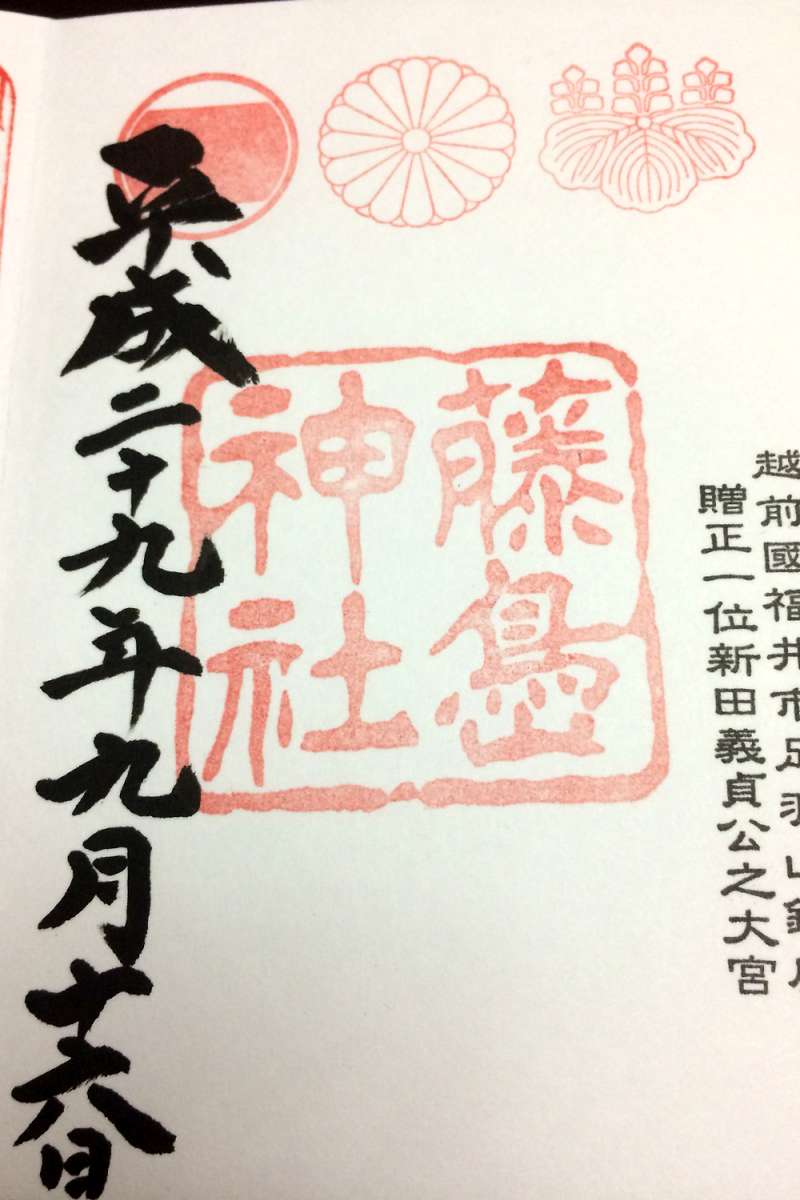 越前國福井市足羽山鎮座
贈正一位新田義貞公之大宮
藤島
神社
平成二十九年九月十六日